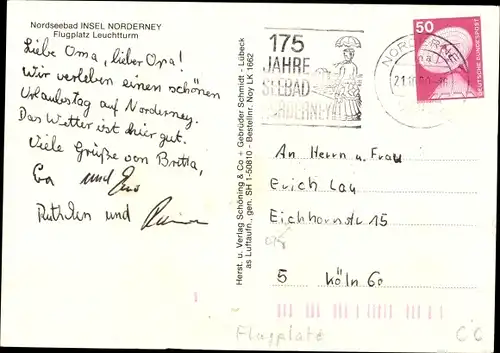 Nordseebad INSEL NORDERNEY
Flugplatz Leuchtturm
Liebe Oma, lieber Opa!
Wir verleben einen schönen
Urlaubstag auf Norderney.
Das Wetter ist hier gut.
Viele Grüße von Britta,
und
und
Herst. u. Verlag Schöning & Co + Gebrüder Schmidt - Lübeck
as Luftaufn., gen. SH 1-50810 - Bestellnr. Noy LK 1662
175
JAHRE
SEEBAD
NORDERNEY
NORDERNEY
50
DEUTSCHE BUNDESPOST
An Herrn u. Frau
Erich Lau
Eichhornstr 15
5 Köln 60
Flugplatz
CC